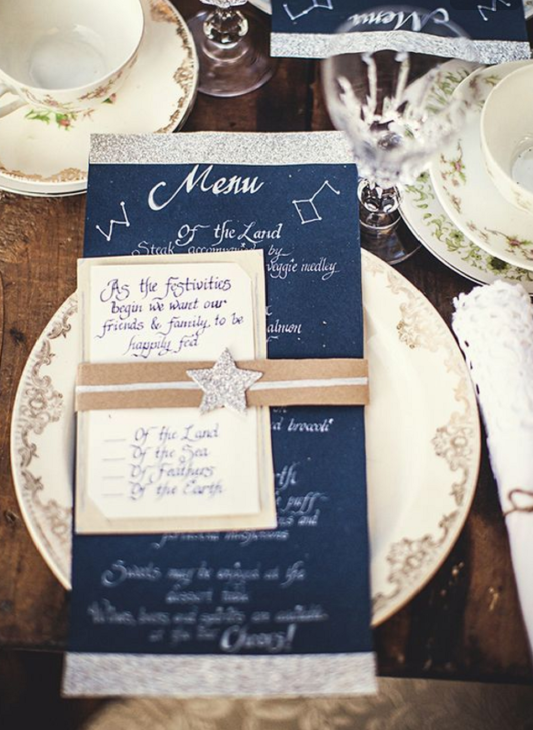 Menu
Menu
Of the Land
Steak accompanied by
veggie medley
As the festivities
begin we want our
friends & family, to be
happily fed
Of the Land
Of the Sea
Of Feathers
Of the Earth
broccoli
puff
and
Sweets may be enjoyed at the
dessert
and spirits are available
at the bar Cheers!